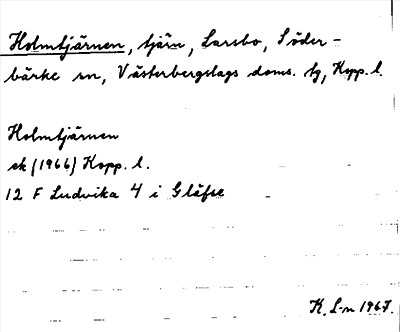 Holmtjärnen, tjärn, Larsbo, Söder-
bärke sn, Västerbergslags doms. tg, Kopp. l.
Holmtjärnen
ek (1966) Kopp. l.
12 F Ludvika 4 i Gläfse
K. L-n 1967.